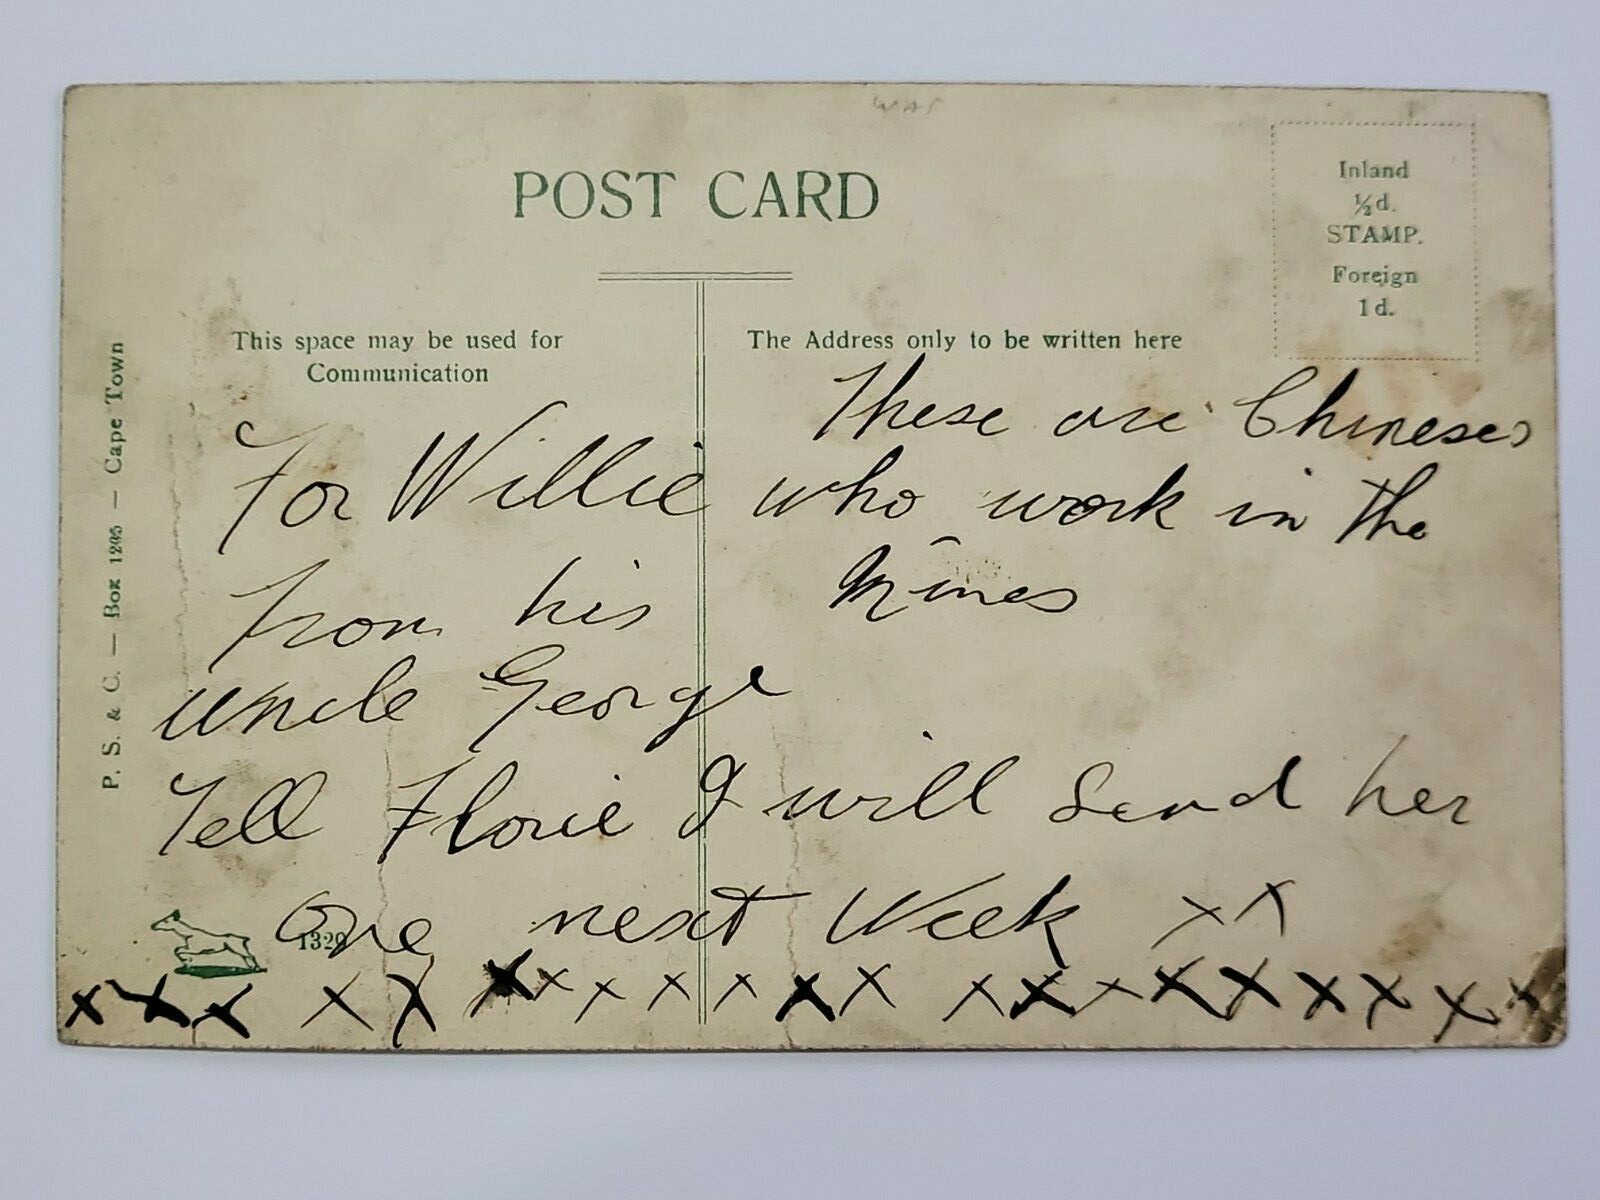 POST CARD
Inland
½d.
STAMP.
Foreign
1d.
This space may be used for
Communication
The Address only to be written here
P. S. & C. — Box 1295 — Cape Town
For Willie
from his
uncle George
These are Chineses
who work in the
Mines
Tell Florie I will Send her
One next Week x x
1329
x x x x x x x x x x x x x x x x x x x x x